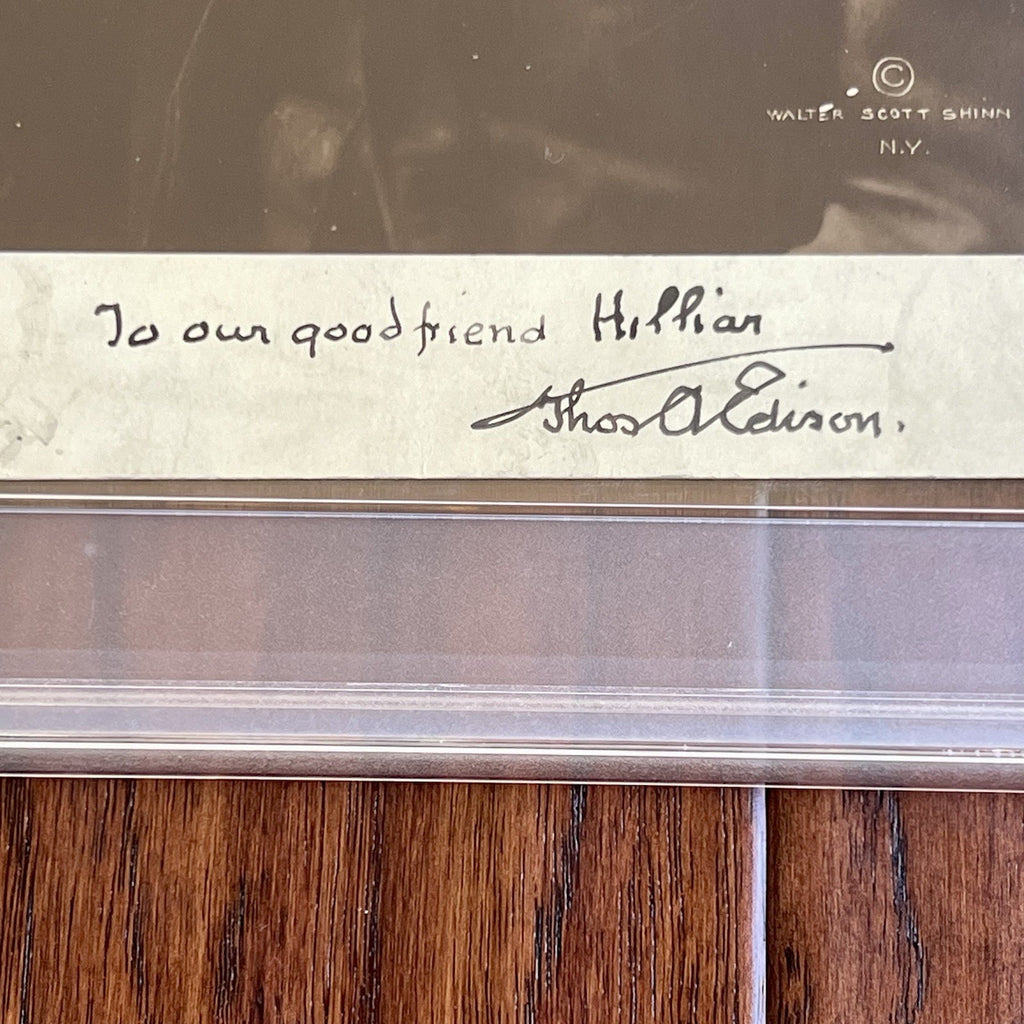 ©
WALTER SCOTT SHINN
N.Y.
To our good friend Hilliar
Thos A Edison.